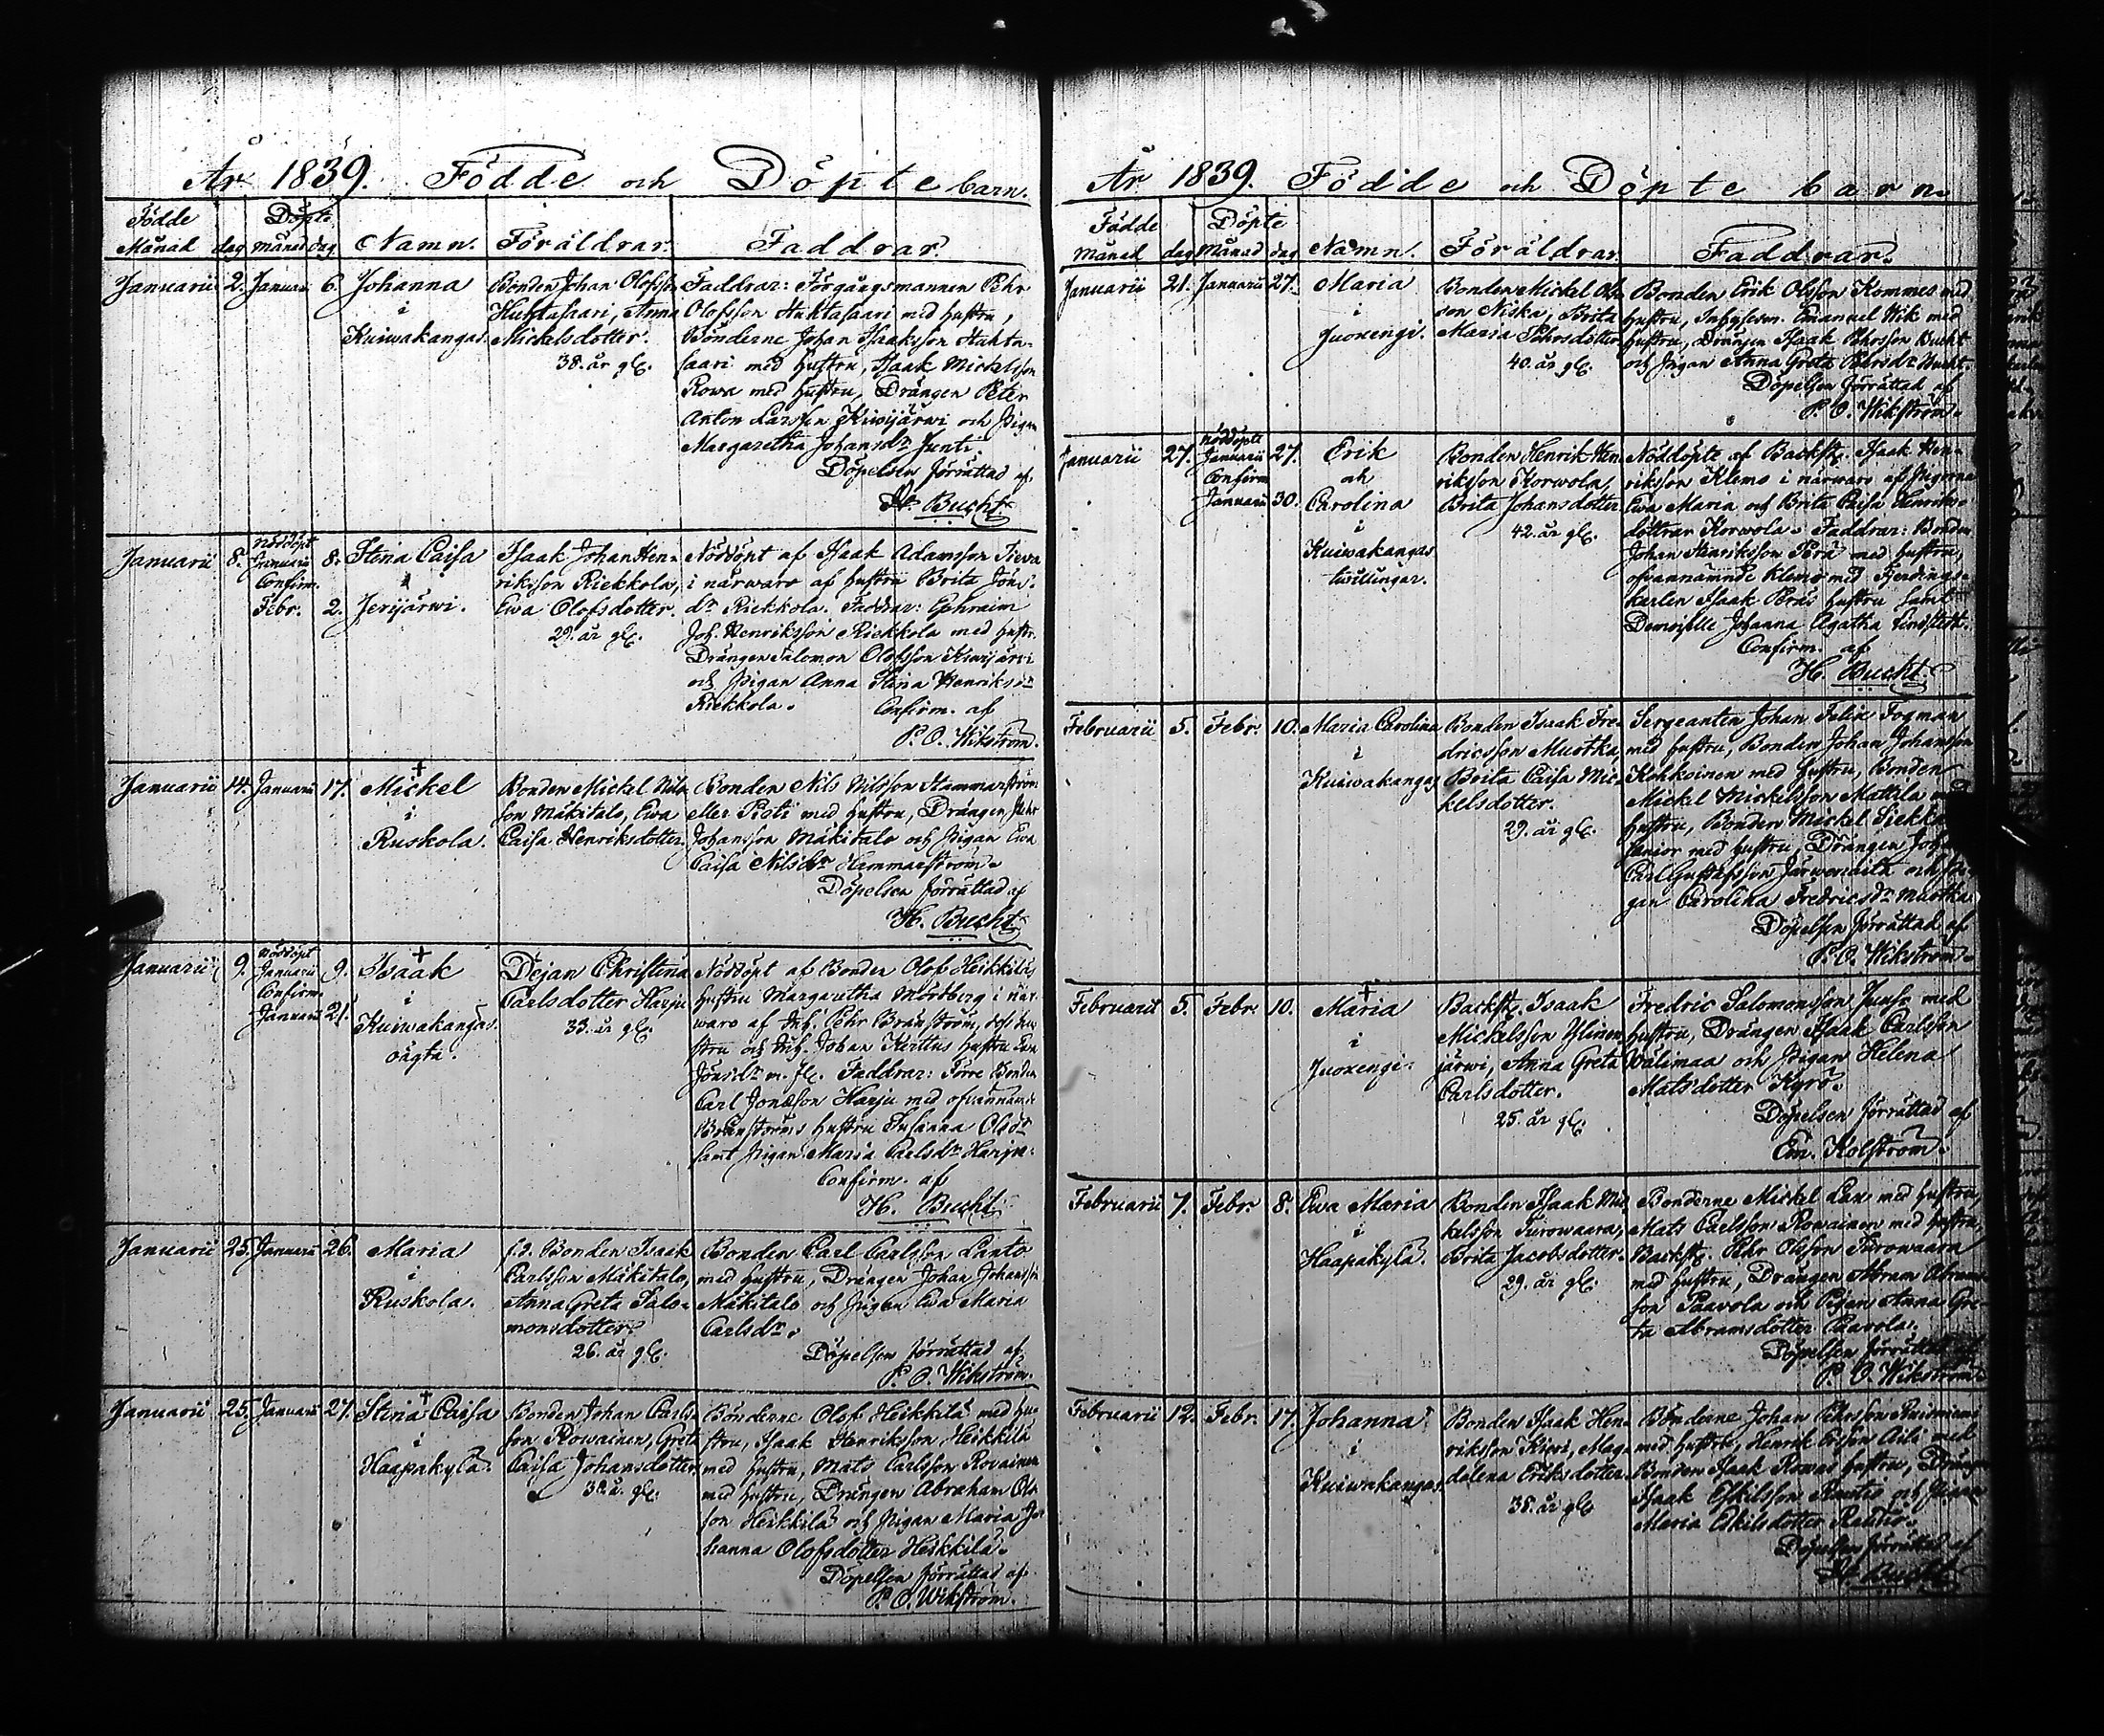 År 1839. Födde och Döpte barn.
Födde Månad dag Döpte månad dag Namn. Föräldrar. Faddrar.
Januarii 2. Januari 6. Johanna
i
Kuiwakangas.
Bonden Johan Olofsson
Huhtasaari, Anna
Mickelsdotter.
38. år gl.
Faddrar: Förgångsmannen Pehr
Olofsson Huhtasaari med hustru,
Bönderne Johan Isaaksson Huhta-
saari med hustru, Isaak Mickelsson
Rowa med hustru, Drängen Peter
Anton Larsson Kiwijärwi och Pigan
Margaretha Johansdr Junti.
Döpelsen förrättad af
H. Bucht
Januarii 8. nöddöpt Januarii 8. Confirm. Febr. 2. Stina Caisa
i
Jerijärwi.
Isaak Johan Hen-
riksson Riekkola,
Ewa Olofsdotter.
29. år gl.
Nöddöpt af Isaak Adamsson Tiewa
i närwaro af hustru Brita Jöns-
dr Riekkola. Faddrar: Ephraim
Joh. Henriksson Riekkola med hustr.
Drängen Salomon Olofsson Kiwijärwi
och Pigan Anna Stina Henriksdr
Riekkola. Confirm. af
P. O. Wikström.
Januarii 14. Januarii 17. Mickel
i
Ruskola.
Bonden Mickel Nils-
son Mäkitalo, Ewa
Caisa Henriksdotter
Bonden Nils Nilsson Hammarström
eller Pioti med hustru, Drängen Pehr
Johansson Mäkitalo och Pigan Ewa
Caisa Nilsdr Hammarström.
Döpelsen förrättad af
H. Bucht
Januarii 9. nöddöpt Januarii 9. Confirm. Januarii 21. Isaak
i
Kuiwakangas.
oägta.
Dejan Christina
Carlsdotter Harju
33. år gl.
Nöddöpt af Bonden Olof Heikkiläs
hustru Margaretha Mörtberg i när-
waro af Inh. Pehr Brännström, dess hu-
stru och Inh. Johan Kerttus hustru Ewa
Jönsdr m. fl. Faddrar: Förre Bonden
Carl Jonsson Harju med ofvannämde
Brännströms hustru Susanna Olsdr
samt Pigan Maria Carlsdr Harju.
Confirm. af
H. Bucht
Januarii 25. Januarii 26. Maria
i
Ruskola.
f.d. Bonden Isaak
Carlsson Mäkitalo,
Anna Greta Salo-
monsdotter.
26. år gl.
Bonden Carl Carlsson Lanto
med hustru, Drängen Johan Johansson
Mäkitalo och Pigan Ewa Maria
Carlsdr.
Döpelsen förrättad af
P. O. Wikström.
Januarii 25. Januarii 27. Stina Caisa
i
Haapakylä.
Bonden Johan Carls-
son Rowainen, Greta
Caisa Johansdotter
år gl.
Bönderne Olof Heikkilä med hu-
stru, Isaak Henriksson Heikkilä
med hustru, Mats Carlsson Rovainen
med hustru, Drängen Abraham Ols-
son Heikkilä och Pigan Maria Jo-
hanna Olofsdotter Heikkilä.
Döpelsen förrättad af
P. O. Wikström.
År 1839. Födde och Döpte barn
Födde månad dag Döpte Månad dag Namn. Föräldrar. Faddrar.
Januarii 21. Januarii 27. Maria
i
Juoxengi.
Bonden Mickel Ols-
son Niska, Brita
Maria Pehrsdotter
40. år gl.
Bonden Erik Olsson Kommes med
hustru, Inhyses. Emanuel Wik med
hustru, Drängen Isaak Pehrsson Bucht
och Pigan Anna Greta Pehrsdr Bucht.
Döpelsen förrättad af
P. O. Wikström.
Januarii 27. nöddöpte Januarii 27. Confirm Januarii 30. Erik
och
Carolina
i
Kuiwakangas
twillingar.
Bonden Henrik Hen-
riksson Korwola,
Brita Johansdotter
42. år gl.
Nöddöpte af Backst. Isaak Hen-
riksson Klemo i närwaro af Pigorna
Ewa Maria och Brita Caisa Henriks-
döttrar Korwola. Faddrar: Bonden
Johan Henriksson Perä med hustru,
ofvannämnde Klemo med Fjerdings-
karlen Isaak Peräs hustru samt
Demoiselle Johanna Agatha Lindstedt.
Confirm. af
H. Bucht
Februarii 5. Febr. 10. Maria Carolina
i
Kuiwakangas
Bonden Isaak Fre-
dricsson Muotka,
Brita Caisa Mic-
kelsdotter.
29. år gl.
Sergeanten Johan Felix Fogman
med hustru, Bonden Johan Johansson
Kohkoinen med hustru, Bonden
Mickel Mickelsson Mattila med
hustru, Bonden Mickel
senior med hustru, Drängen
Carl Gustafsson och Pi-
gan Carolina Fredricsdr Muotka
Döpelsen förrättad af
P. O. Wikström.
Februarii 5. Febr. 10. Maria
i
Juoxengi.
Backst. Isaak
Mickelsson Ylinen-
järwi, Anna Greta
Carlsdotter.
25. år gl.
Fredric Salomonsson Juuso med
hustru, Drängen Isaak Carlsson
Wälimaa och Pigan Helena
Matsdotter Kyrö.
Döpelsen förrättad af
Em. Kolström.
Februarii 7. Febr 8. Ewa Maria
i
Haapakylä.
Bonden Isaak Mic-
kelsson Turowaara,
Brita Jacobsdotter.
29. år gl.
Bönderne Mickel Lax med hustru,
Mats Carlsson Rowainen med hustru,
Backst. Pehr Olsson Turowaara
med hustru, Drängen Abram Abrams-
son Paavola och Pigan Anna Gre-
ta Abramsdotter Paavola.
Döpelsen förrättad af
P. O. Wikström.
Februarii 12. Febr. 17. Johanna
i
Kuiwakangas.
Bonden Isaak Hen-
riksson Kiwi, Mag-
dalena Eriksdotter.
38. år gl
Bönderne Johan Pehrsson
med hustru, Henrik med
Bonden Isaak Rowas hustru, Drängen
Isaak Eskilsson Rautio och Pigan
Maria Eskilsdotter Rautio.
Döpelsen förrättad af
H. Bucht